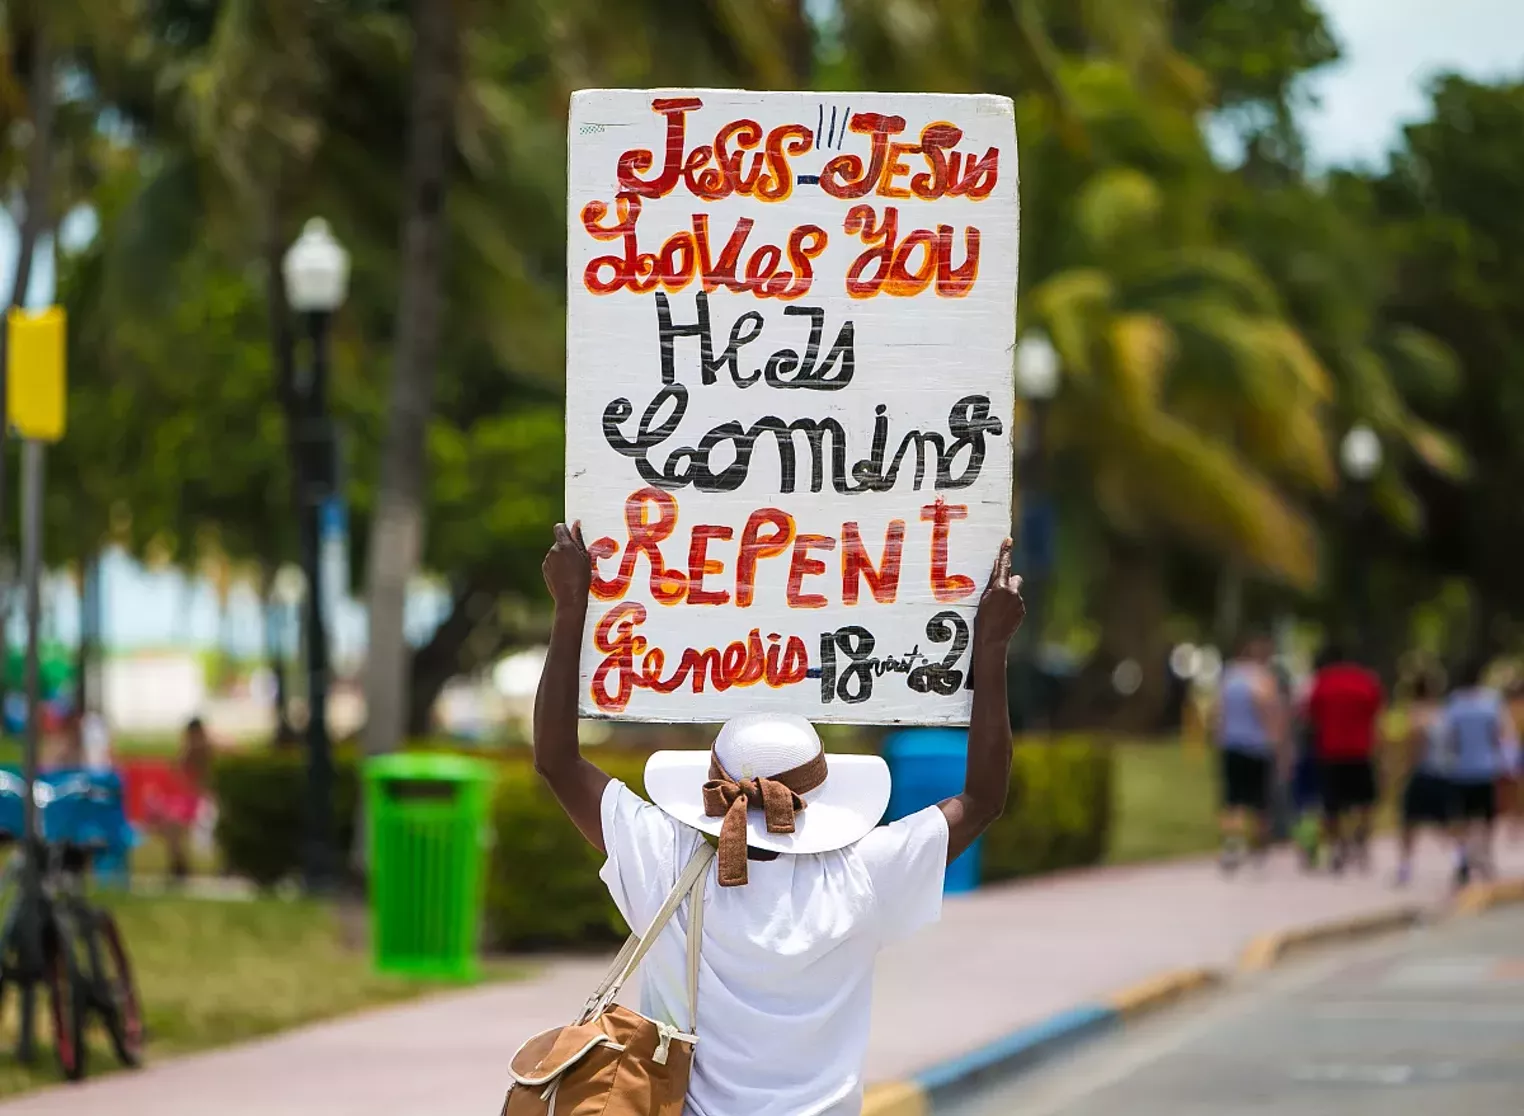 Jesus-JESUS
Loves You
He Is
Coming
REPENT
Genesis-18